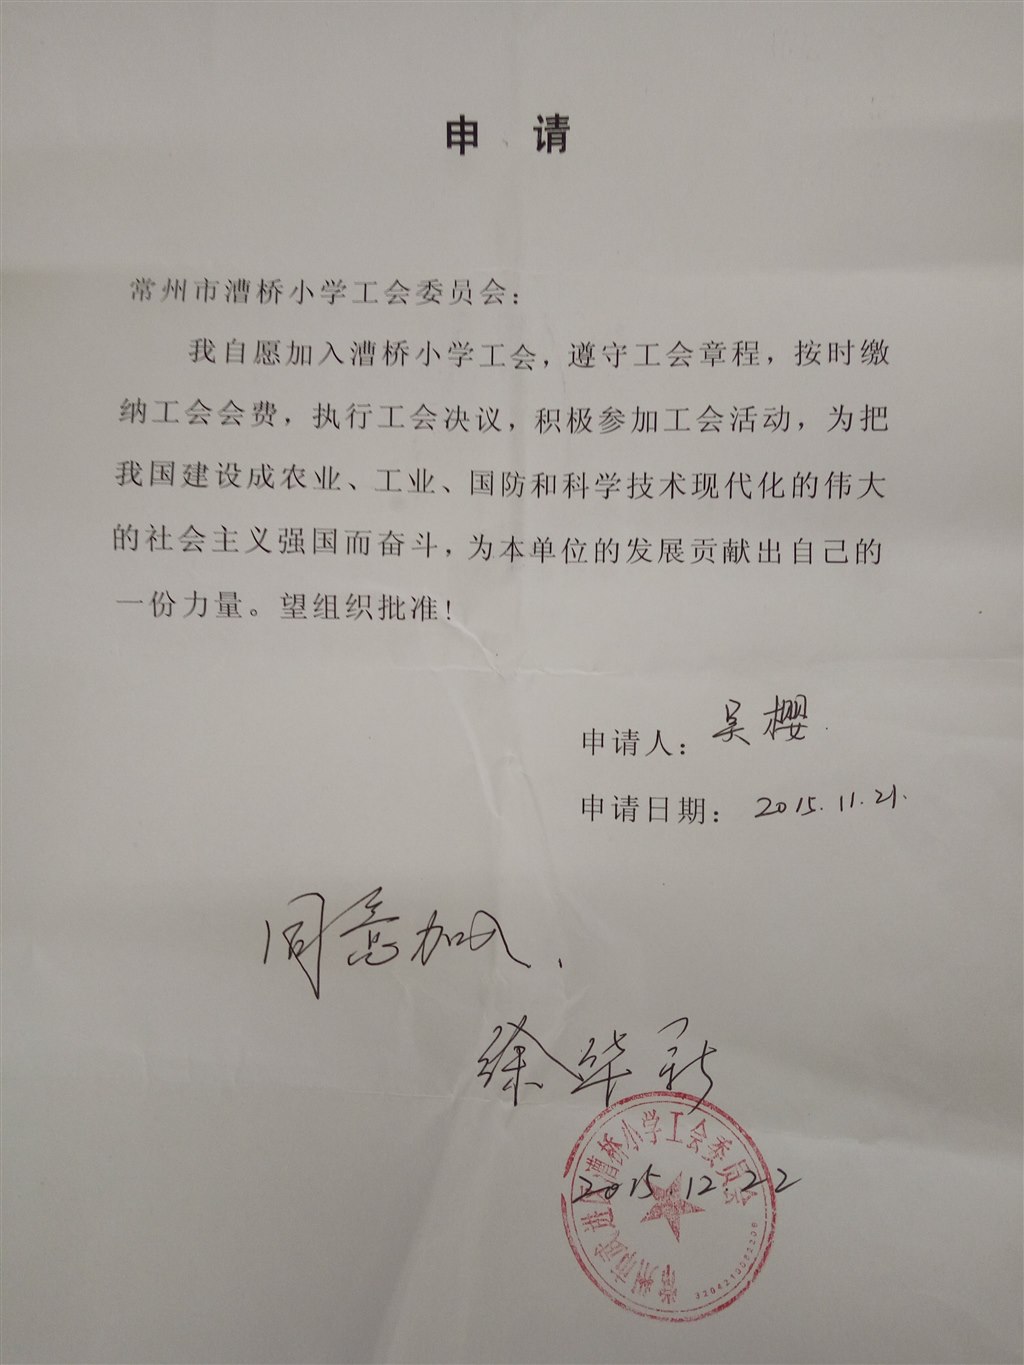 申 请
常州市漕桥小学工会委员会：
我自愿加入漕桥小学工会，遵守工会章程，按时缴
纳工会会费，执行工会决议，积极参加工会活动，为把
我国建设成农业、工业、国防和科学技术现代化的伟大
的社会主义强国而奋斗，为本单位的发展贡献出自己的
一份力量。望组织批准！
申请人：吴樱
申请日期：2015.11.21.
同意加入.
徐华新
2015.12.22
常州市武进区漕桥小学工会委员会